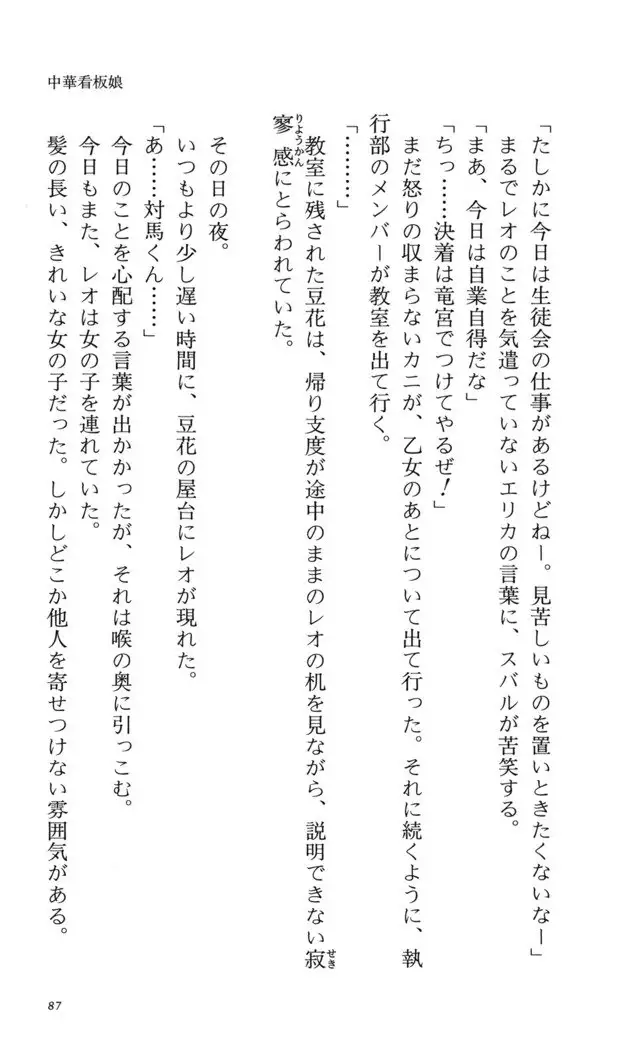 中華看板娘
「たしかに今日は生徒会の仕事があるけどねー。見苦しいものを置いときたくないなー」
まるでレオのことを気遣っていないエリカの言葉に、スバルが苦笑する。
「まあ、今日は自業自得だな」
「ちっ……決着は竜宮でつけてやるぜ！」
まだ怒りの収まらないカニが、乙女のあとについて出て行った。それに続くように、執
行部のメンバーが教室を出て行く。
「………」
教室に残された豆花は、帰り支度が途中のままのレオの机を見ながら、説明できない寂（せき）
寥（りょう）感（かん）にとらわれていた。
その日の夜。
いつもより少し遅い時間に、豆花の屋台にレオが現れた。
「あ……対馬くん……」
今日のことを心配する言葉が出かかったが、それは喉の奥に引っこむ。
今日もまた、レオは女の子を連れていた。
髪の長い、きれいな女の子だった。しかしどこか他人を寄せつけない雰囲気がある。
87